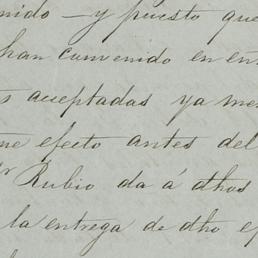 nido — y puesto que
han convenido en en
s aceptadas ya me
ne efecto antes del
r Rubio da á dhos
la entrega de dho ef